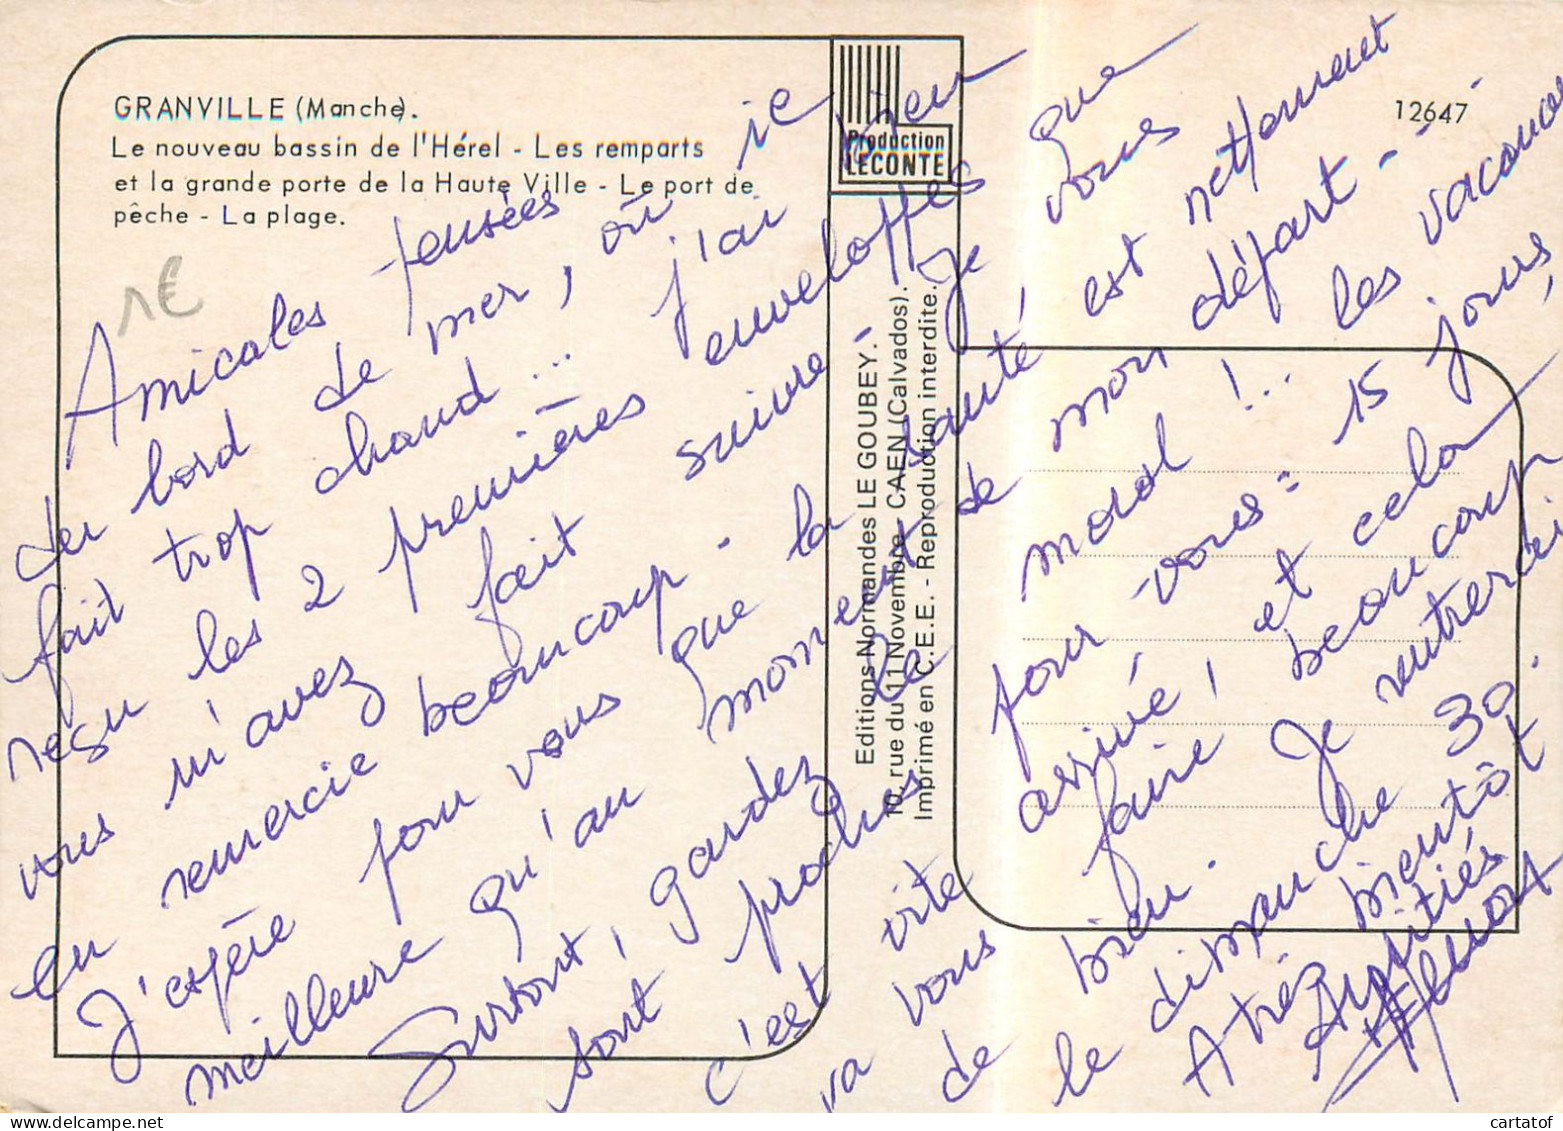 GRANVILLE (Manche).
Le nouveau bassin de l'Hérel - Les remparts
et la grande porte de la Haute Ville - Le port de
pêche - La plage.
12647
Production
LECONTE
Editions Normandes LE GOUBEY.
10, rue du 11 Novembre - CAEN (Calvados).
Imprimé en C.E.E. - Reproduction interdite.
1€
Amicales pensées
du bord de mer, où ie
fait trop chaud... j'ai bien
reçu les 2 premières enveloppes que
vous m'avez fait suivre - Je vous
en remercie beaucoup.
J'espère pour vous que la santé est nettement
meilleure qu'au moment de mon départ -
Surtout, gardez le moral !.. les vacances
sont proches pour vous = 15 jours,
c'est vite arrivé, et cela
va vous faire beaucoup
de bien. Je rentrerai
le dimanche 30.
A très bientôt
Amitiés
cartatof